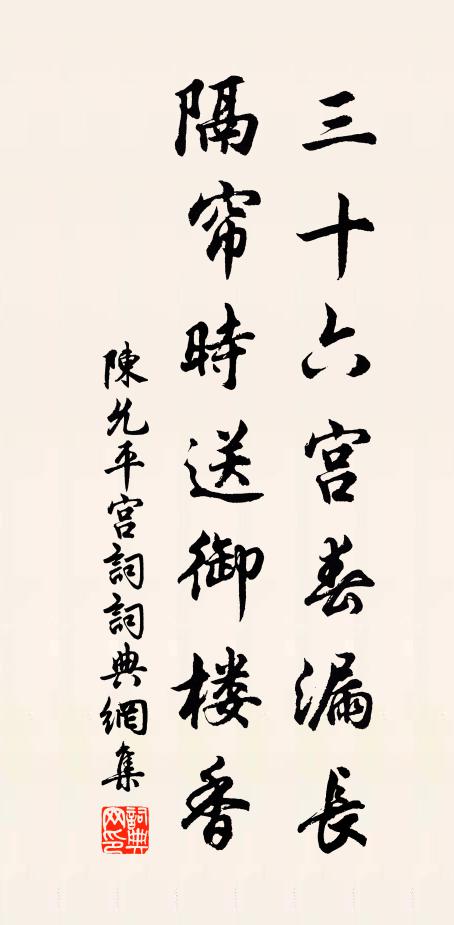 三十六宫春漏長
隔帘時送御楼香
陳允平宫詞詞典網集
詞典网印